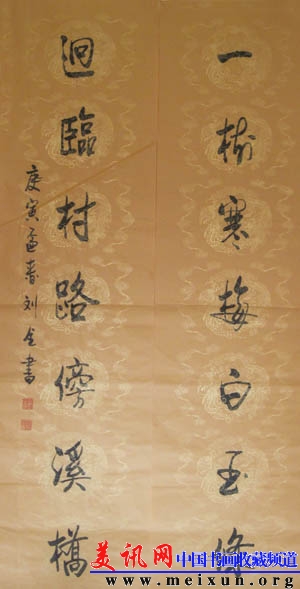 一樹寒梅白玉條
迥臨村路傍溪橋
庚寅孟春刘金書
美讯网 中国书画收藏频道
www.meixun.org